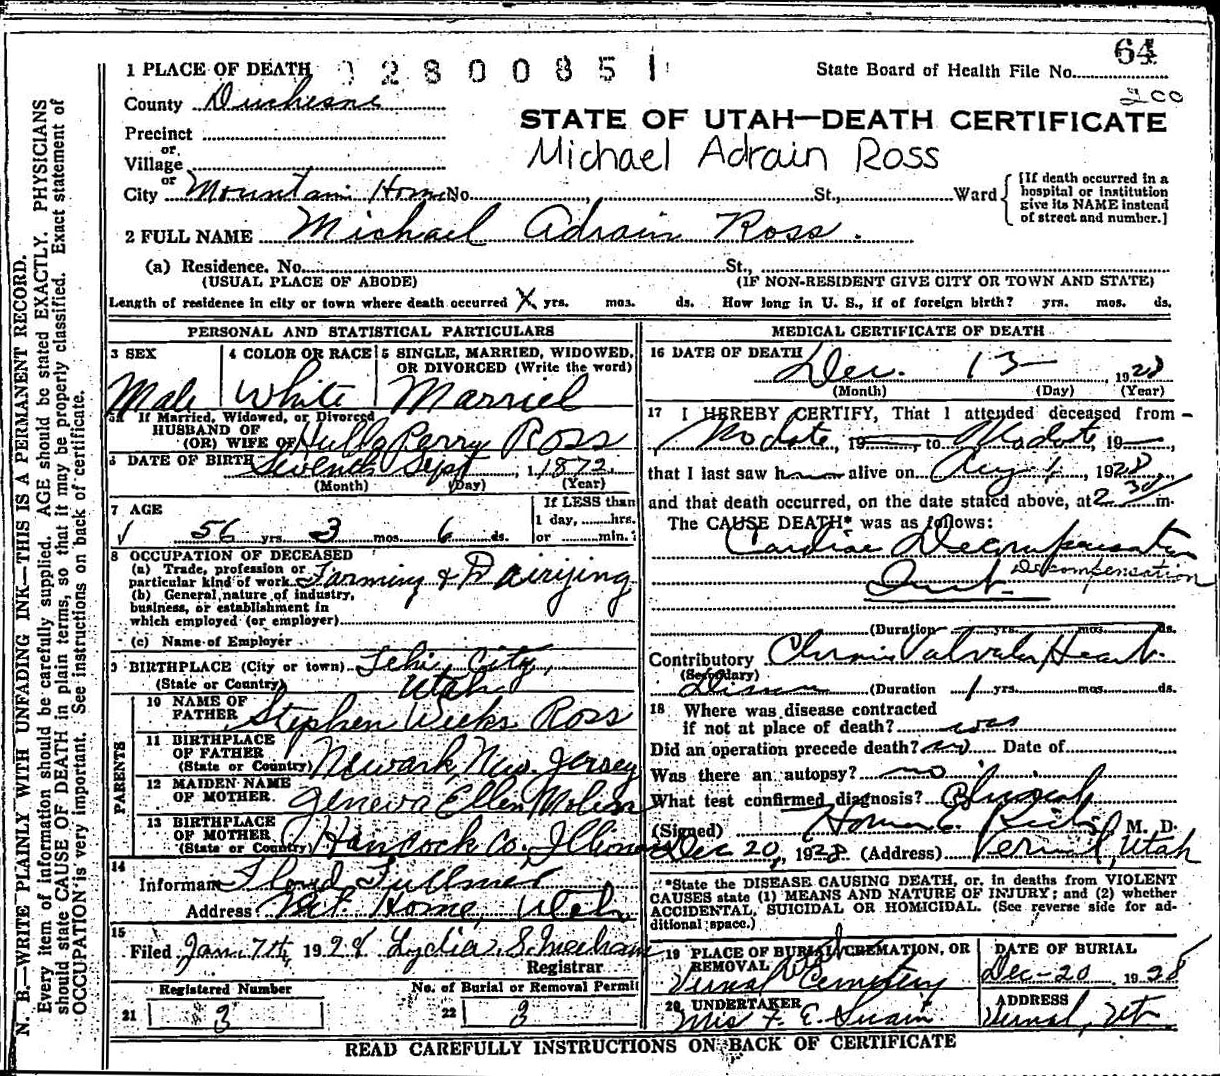 64
1 PLACE OF DEATH 02800851
State Board of Health File No.
200
County Duchesne
STATE OF UTAH—DEATH CERTIFICATE
Precinct
or
Village
Michael Adrain Ross
or
City Mountain Home No. St., Ward
[If death occurred in a hospital or institution give its NAME instead of street and number.]
2 FULL NAME Michael Adrain Ross.
(a) Residence. No. St.,
(USUAL PLACE OF ABODE) (IF NON-RESIDENT GIVE CITY OR TOWN AND STATE)
Length of residence in city or town where death occurred X yrs. mos. ds. How long in U. S., if of foreign birth? yrs. mos. ds.
PERSONAL AND STATISTICAL PARTICULARS
3 SEX
Male
4 COLOR OR RACE
White
5 SINGLE, MARRIED, WIDOWED, OR DIVORCED (Write the word)
Married
5A If Married, Widowed, or Divorced
HUSBAND OF
(OR) WIFE OF Perry Ross
6 DATE OF BIRTH Seventh Sept 1872
(Month) (Day) (Year)
7 AGE
56 yrs. 3 mos. 6 ds.
If LESS than
1 day, hrs.
or min.
8 OCCUPATION OF DECEASED
(a) Trade, profession or
particular kind of work Farming & Dairying
(b) General nature of industry,
business, or establishment in
which employed (or employer)
(c) Name of Employer
9 BIRTHPLACE (City or town) Lehi City,
(State or Country) Utah
PARENTS
10 NAME OF
FATHER Stephen Weeks Ross
11 BIRTHPLACE
OF FATHER
(State or Country) Newark, New Jersey
12 MAIDEN NAME
OF MOTHER Geneva Ellen
13 BIRTHPLACE
OF MOTHER
(State or Country) Hancock Co., Illinois
14
Informant Floyd Fullmer
Address Mt. Home, Utah
15
Filed Jan. 7th, 192 Lydia S.
Registrar
Registered Number
21 3
No. of Burial or Removal Permit
22 3
MEDICAL CERTIFICATE OF DEATH
16 DATE OF DEATH
Dec. 13 1928
(Month) (Day) (Year)
17 I HEREBY CERTIFY, That I attended deceased from
No date, 19 to No date 19
that I last saw h alive on Aug 1, 1928
and that death occurred, on the date stated above, at 2 30 m.
The CAUSE DEATH* was as follows:
Cardiac Decompensation
Decompensation
(Duration yrs. mos. ds.
Contributory Chronic Valvular Heart
(Secondary)
Disease (Duration 1 yrs. mos. ds.
18 Where was disease contracted
if not at place of death?
Did an operation precede death? no Date of
Was there an autopsy? no
What test confirmed diagnosis?
(Signed) Homer E. M. D.
Dec 20, 1928 (Address) Vernal, Utah
*State the DISEASE CAUSING DEATH, or, in deaths from VIOLENT
CAUSES state (1) MEANS AND NATURE OF INJURY; and (2) whether
ACCIDENTAL, SUICIDAL OR HOMICIDAL. (See reverse side for ad-
ditional space.)
19 PLACE OF BURIAL, CREMATION, OR
REMOVAL
Vernal Cemetery
DATE OF BURIAL
Dec-20 1928
20 UNDERTAKER
Mrs F. E. Swain
ADDRESS
Vernal, Ut
READ CAREFULLY INSTRUCTIONS ON BACK OF CERTIFICATE
N. B.—WRITE PLAINLY WITH UNFADING INK—THIS IS A PERMANENT RECORD.
Every item of information should be carefully supplied. AGE should be stated EXACTLY. PHYSICIANS
should state CAUSE OF DEATH in plain terms, so that it may be properly classified. Exact statement of
OCCUPATION is very important. See instructions on back of certificate.